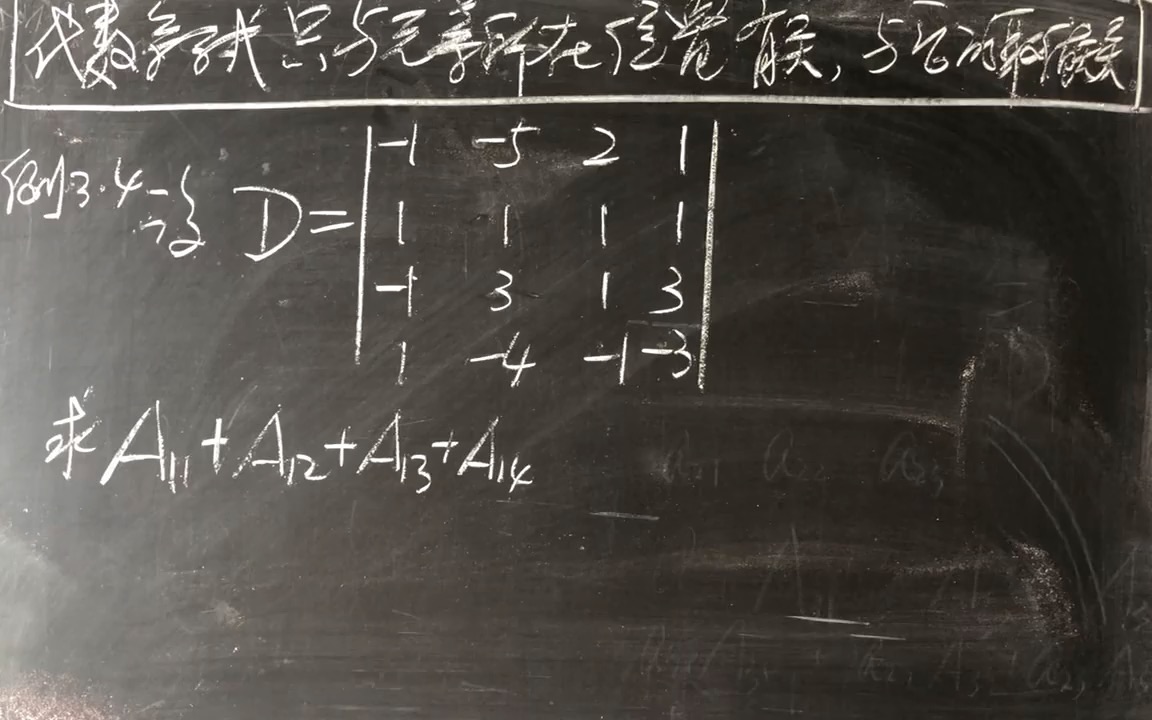 代数余子式只与元素所在位置有关,与它的取值无关
例3.4 设 D=
-1 -5 2 1
1 1 1 1
-1 3 1 3
1 -4 -1 -3
求 A11+A12+A13+A14